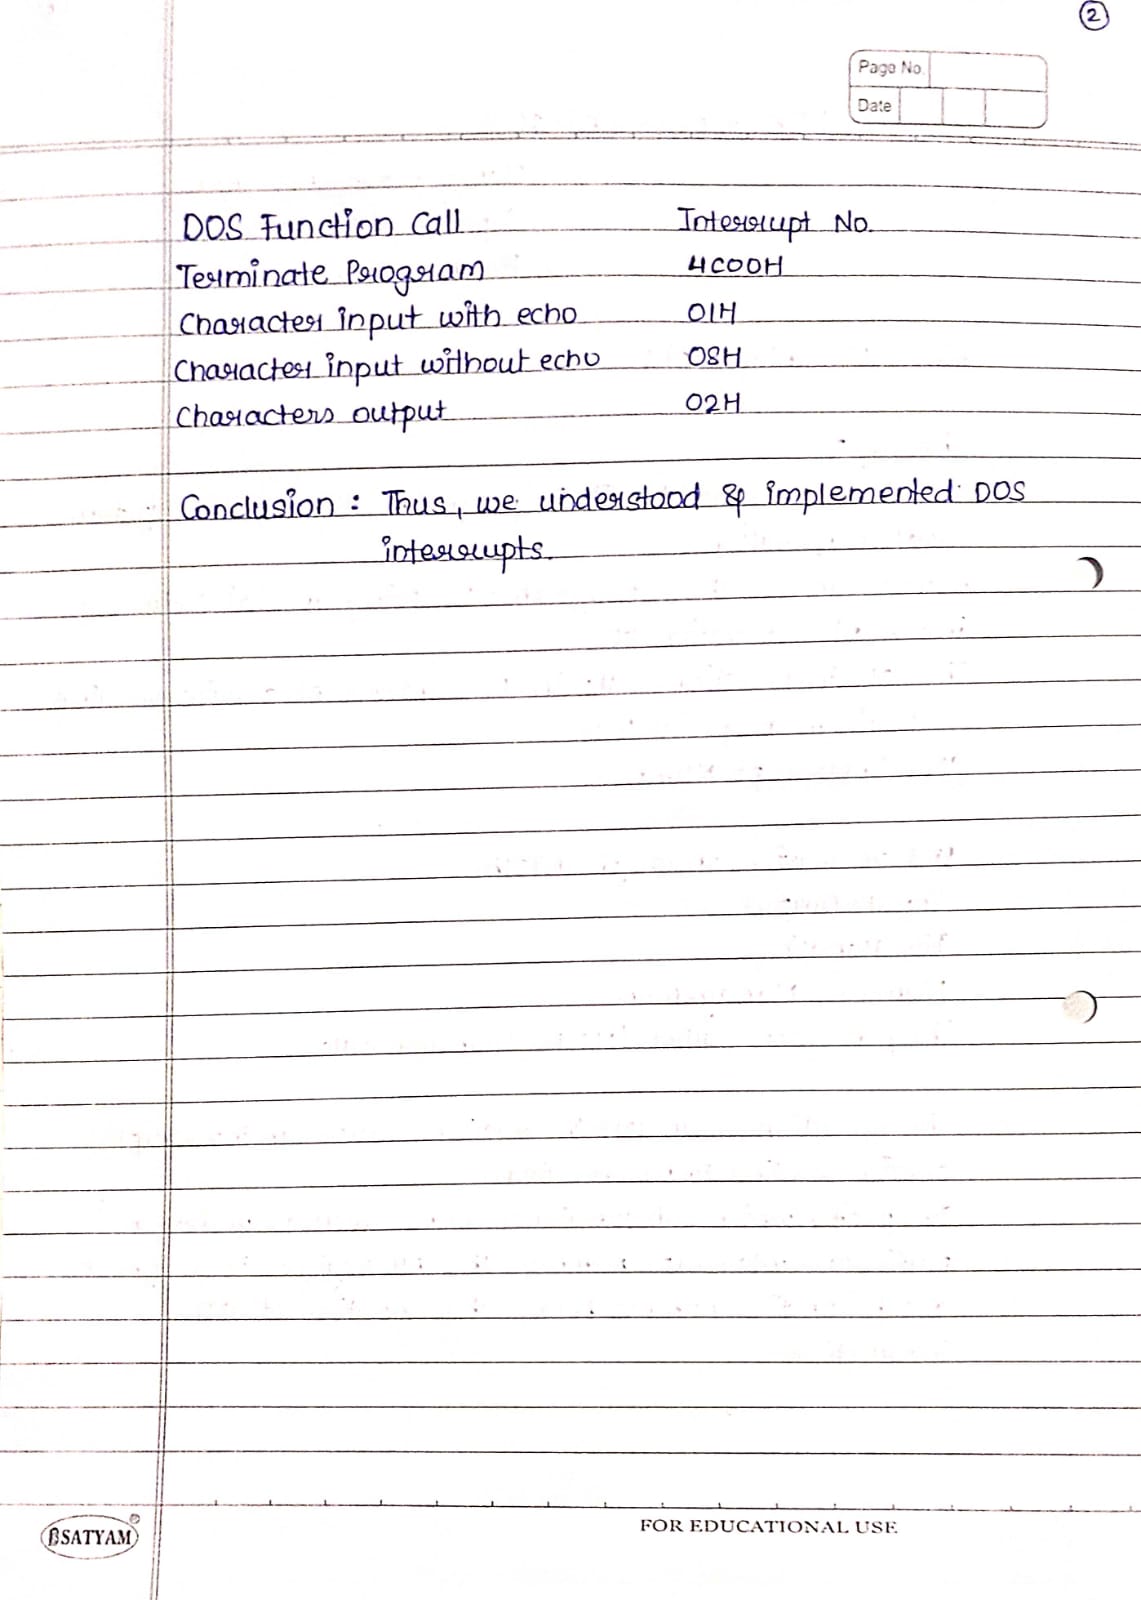 2
Page No.
Date
DOS Function Call Interrupt No.
Terminate Program 4C00H
Character input with echo 01H
Character input without echo 08H
Characters output 02H
Conclusion : Thus, we understood & implemented DOS
interrupts.
SATYAM
FOR EDUCATIONAL USE